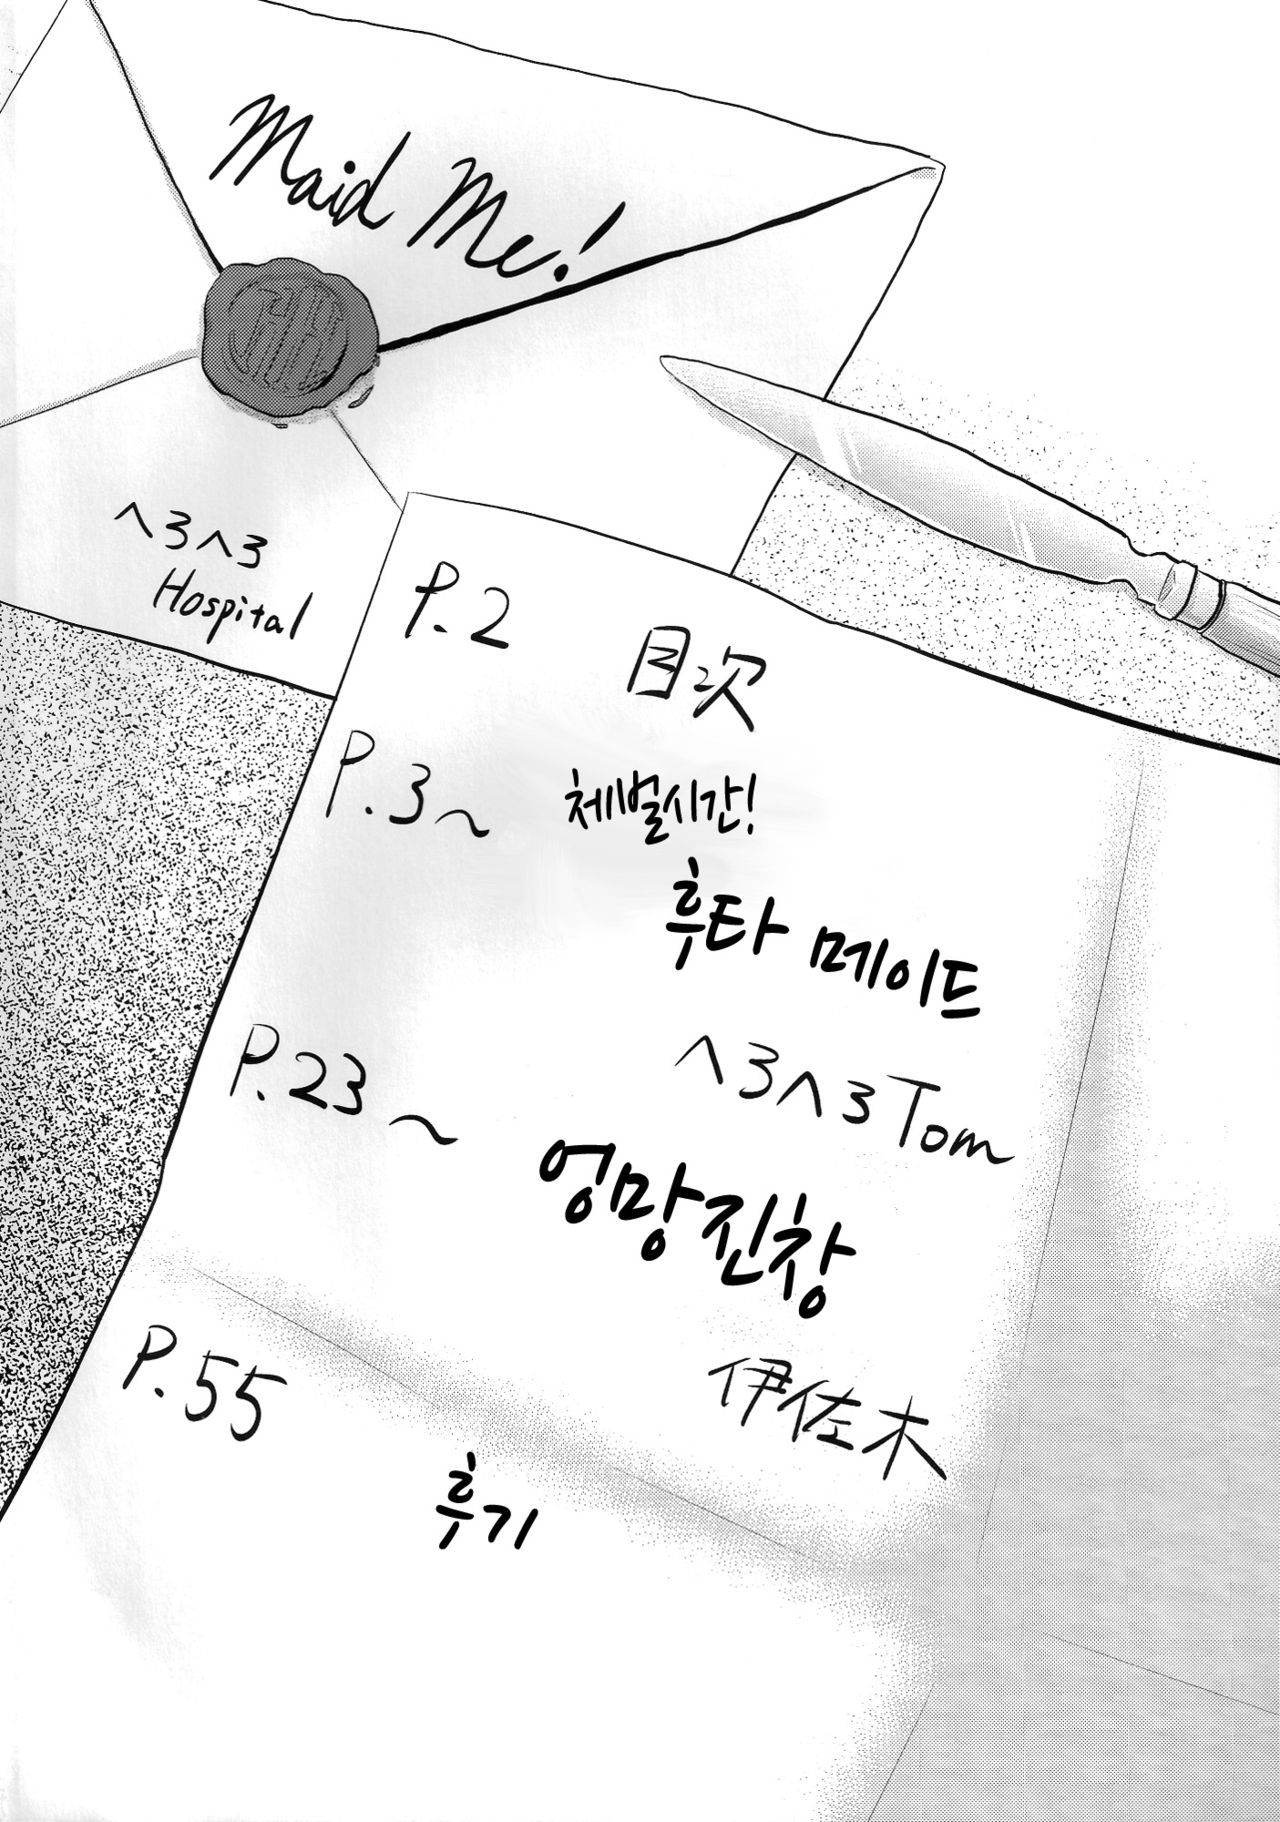 Maid Me!
へろへろ
Hospital
P.2 目次
P.3～ 체벌시간!
후타 메이드
へろへろTom
P.23～ 엉망진창
伊佐木
P.55
후기